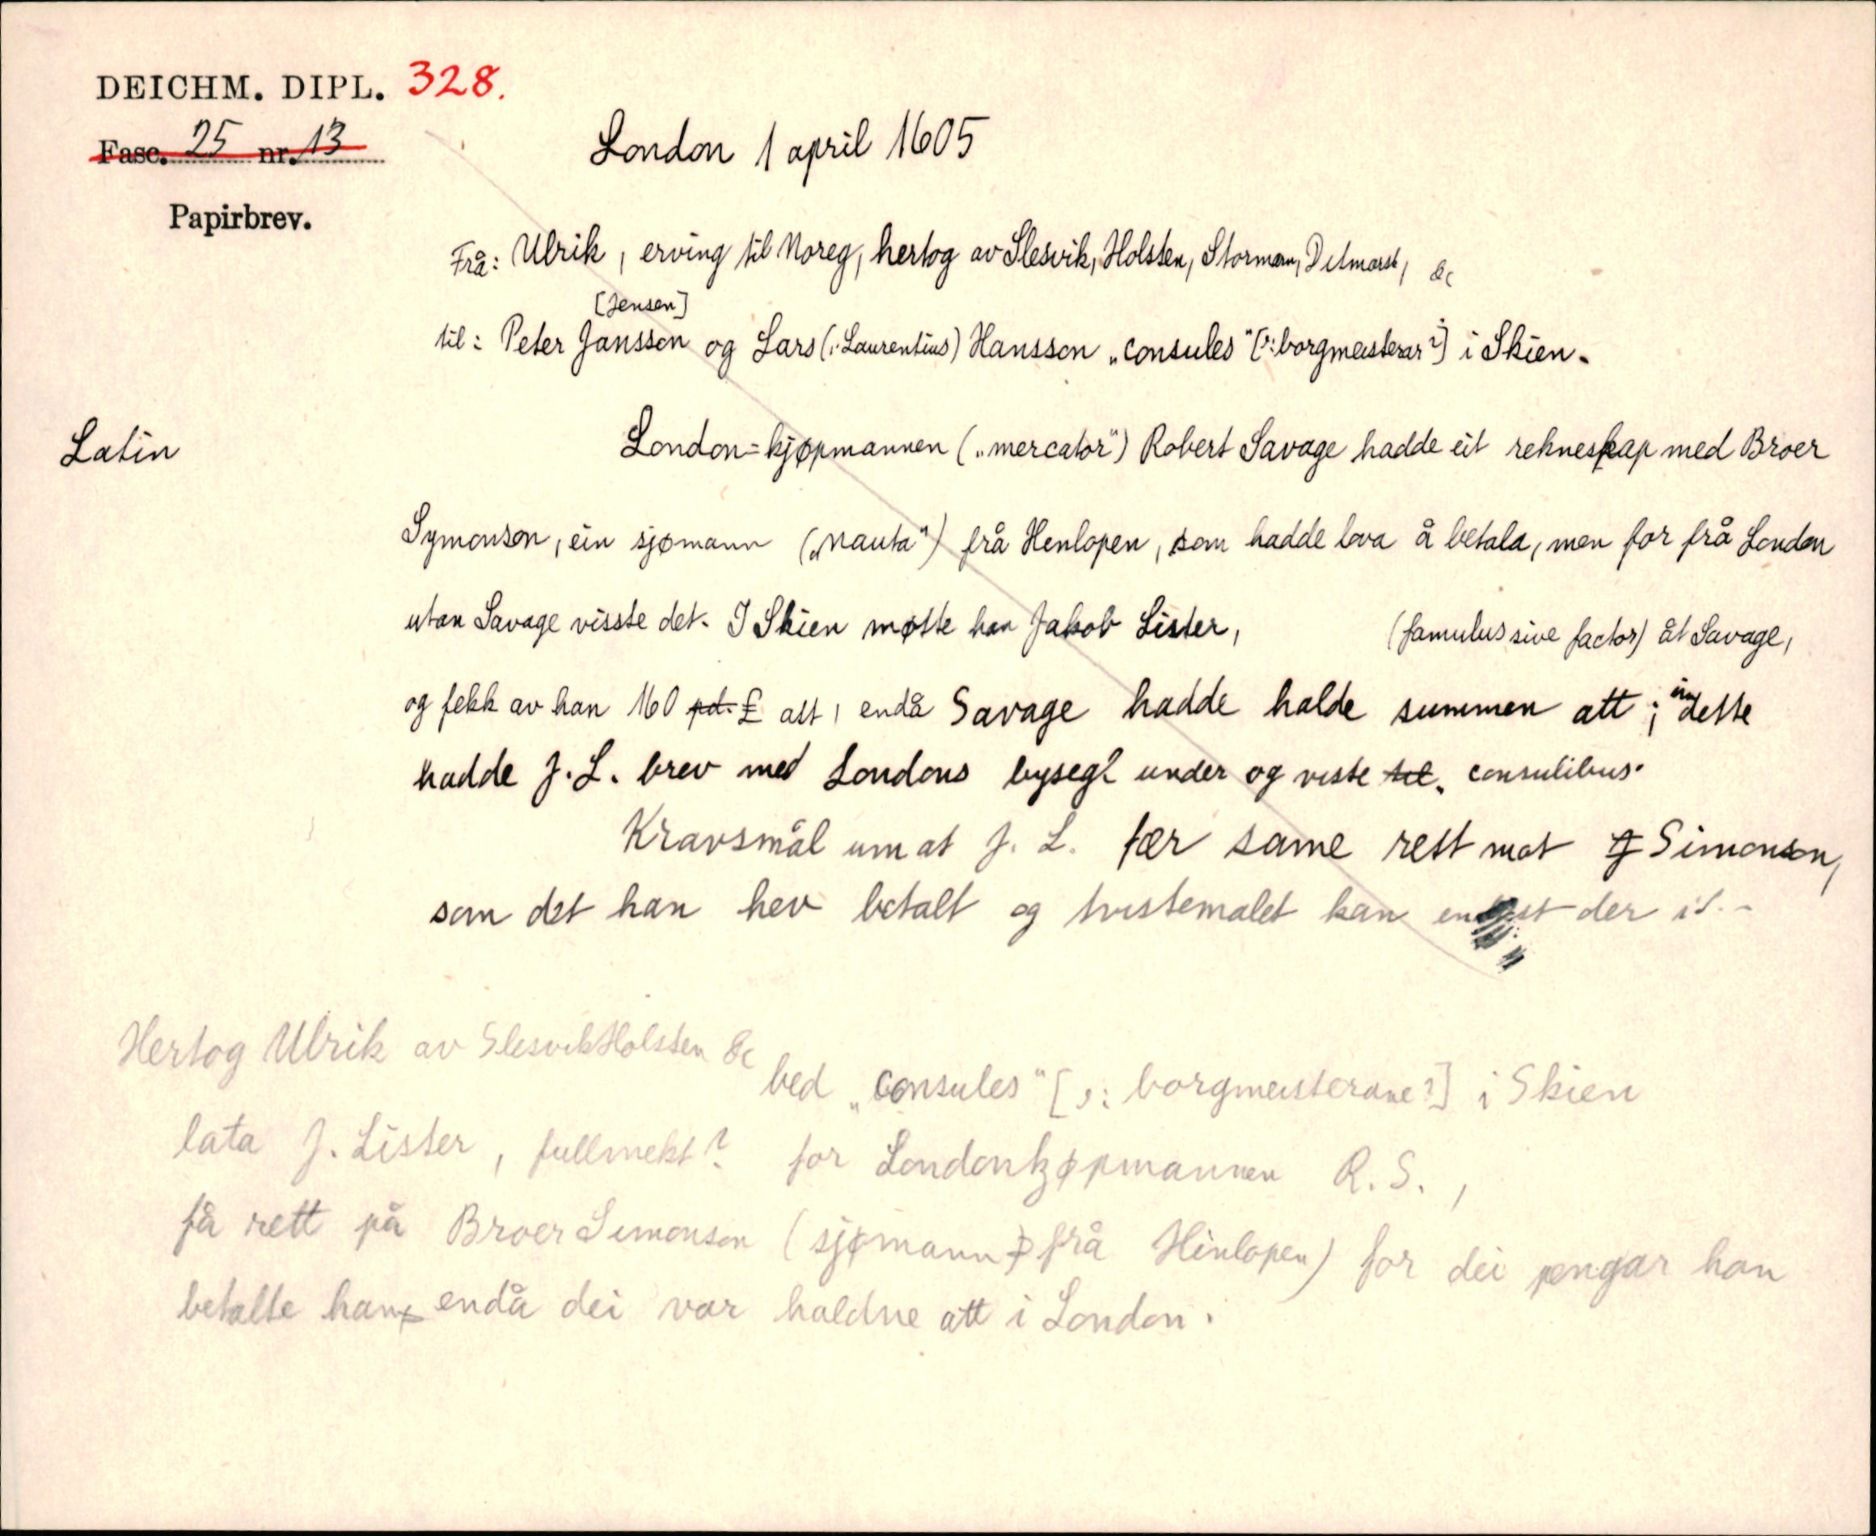 DEICHM. DIPL. 328.
Fasc. 25 nr. 13
London 1 april 1605
Papirbrev.
Frå: Ulrik, erving til Noreg, hertog av Slesvik, Holsten, Storman, Ditmarsk, &c
[Jensen]
til: Peter Jansson og Lars (: Laurentius) Hansson „consules" [ɔ: borgmeisterar?] i Skien.
Latin
London-kjøpmannen („mercator") Robert Savage hadde eit rekneskap med Broer
Symonson, ein sjømann („nauta") frå Henlopen, som hadde lova å betala, men for frå London
utan Savage visste det. I Skien møtte han Jakob Lister, (famulus sive factor) åt Savage,
og fekk av han 160 pd. £ att, endå Savage hadde halde summen att; um dette
hadde J. L. brev med Londons bysegl under og viste til. consulibus.
Kravsmål um at J. L. fær same rett mot J Simonson,
som det han hev betalt og tvistemålet kan endast der it.-
Hertog Ulrik av Slesvik Holsten &c
bed „consules" [ɔ: borgmeisterane?] i Skien
lata J. Lister, fullmekt? for Londonkjøpmannen R. S.,
få rett på Broer Simonson (sjømann) frå Hinlopen) for dei pengar han
betalte han, endå dei var haldne att i London.